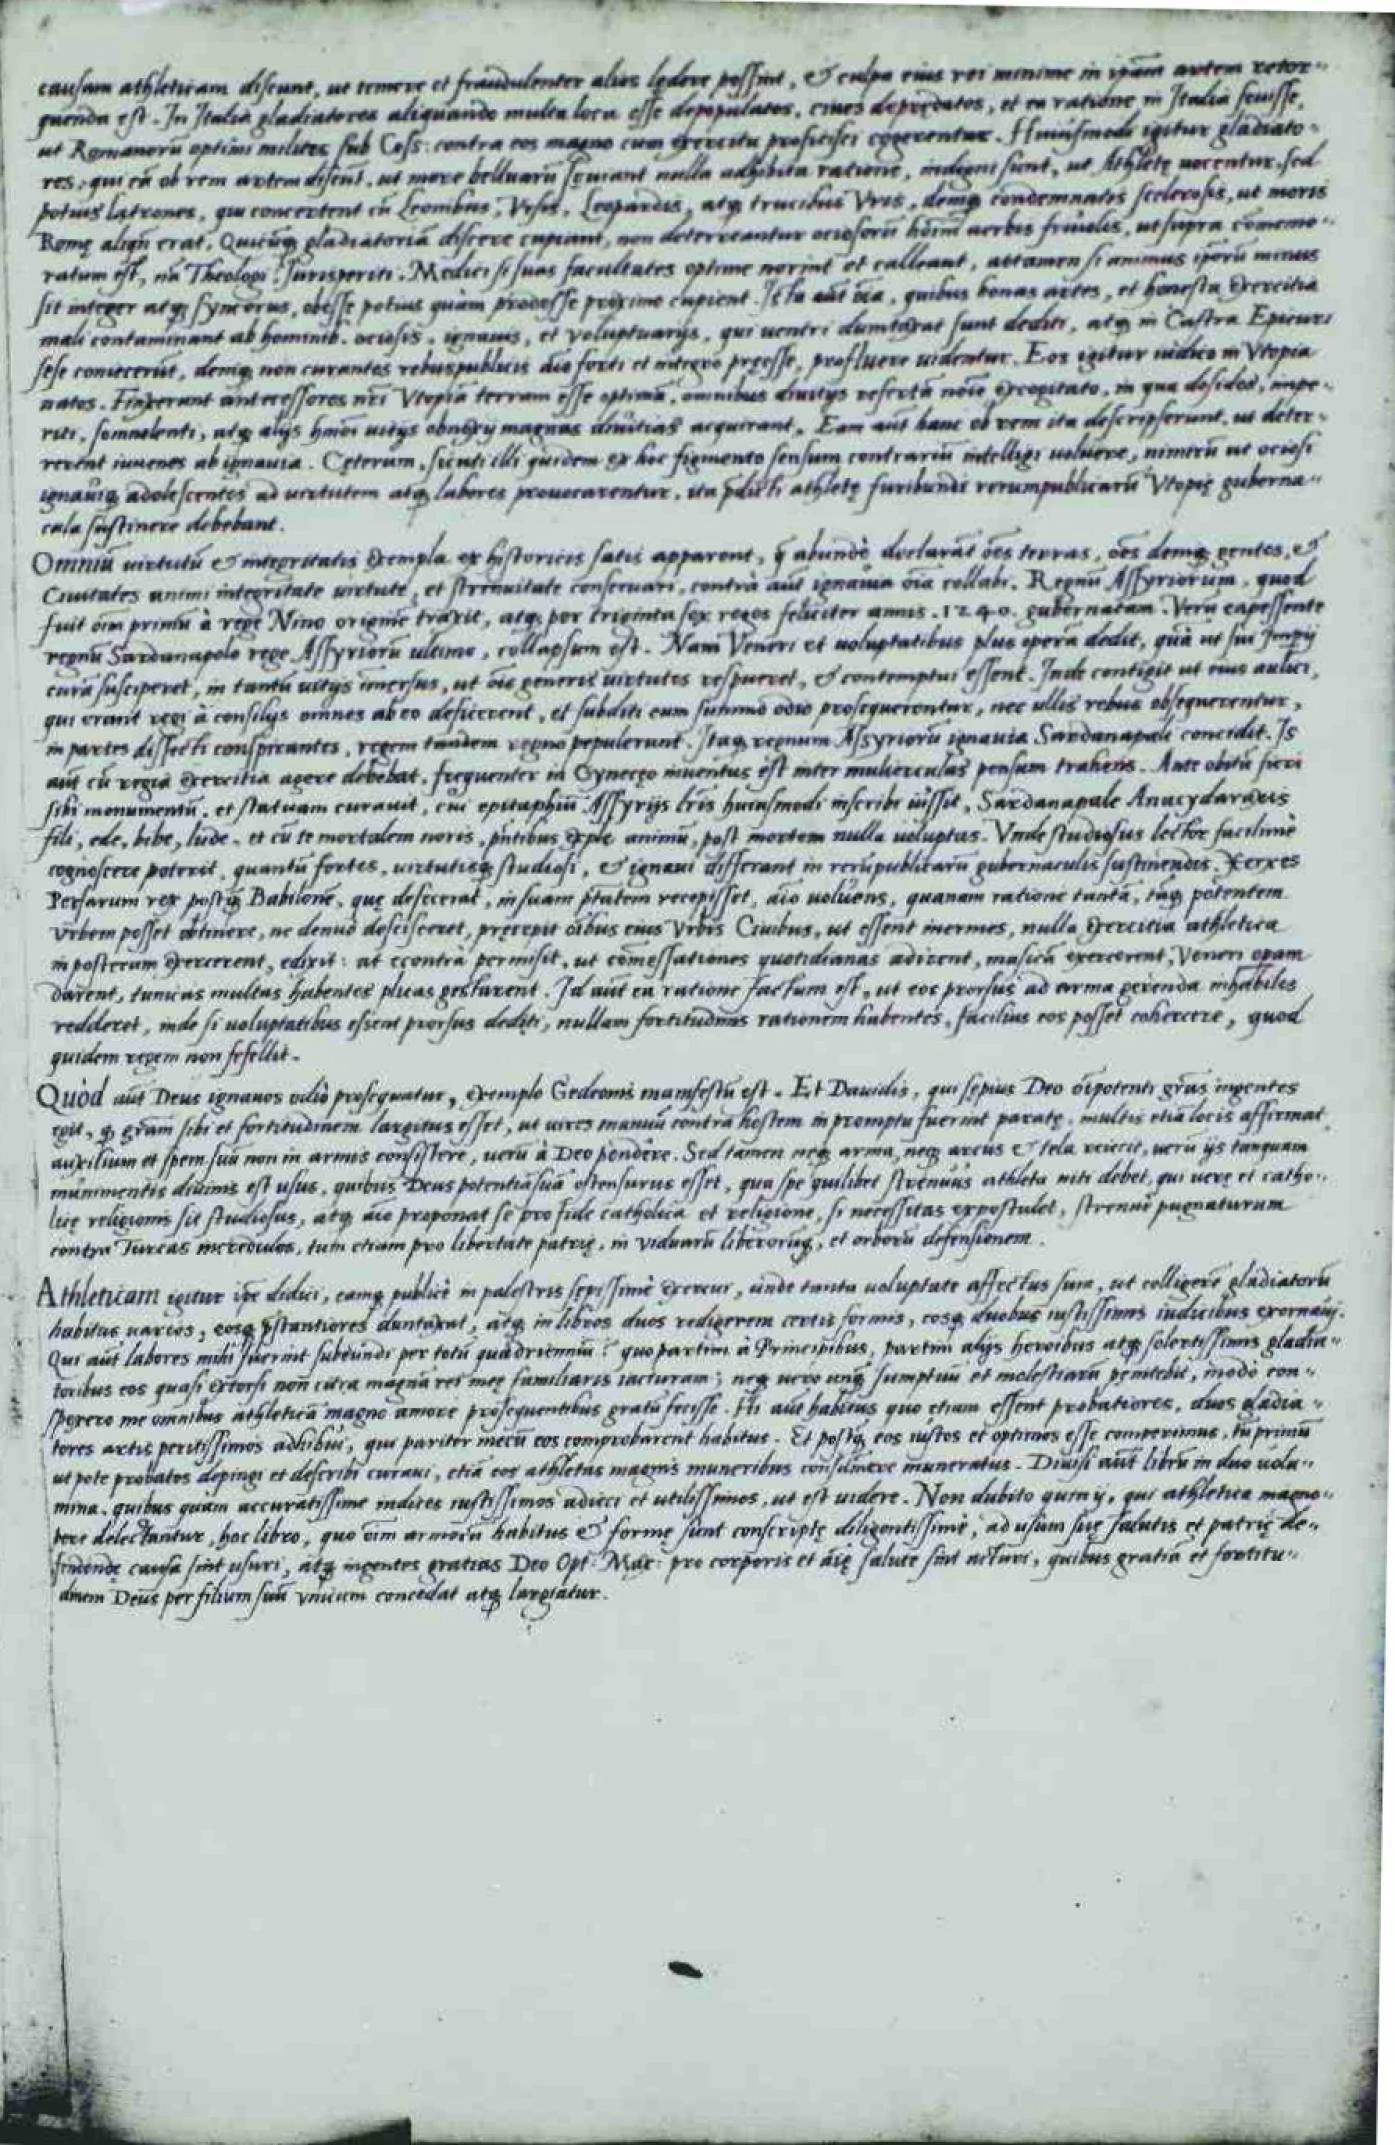 causam athleticam discunt, ut temere et fraudulenter alios lędere possint, & culpa eius rei minime in ipãm artem retor-
quenda est. In Italia gladiatores aliquando multa loca esse depopulatos, ciues deprędatos, et ea ratione in Italia seuisse,
ut Romanorũ optimi milites sub Coss: contra eos magno cum exercitu proficisci cogerentur. Huiusmodi igitur gladiato-
res, qui eã ob rem artem discũt, ut more belluarũ sęuiant nulla adhibita ratione, indigni sunt, ut Athletę uocentur, sed
potius latrones, qui concertent cũ Leonibus, Vrsis, Leopardis, atq; trucibus Vris, deniq; condemnatis scelerosis, ut moris
Romę aliqñ erat. Quicũq; gladiatoriã discere cupiant, non deterreantur ociosorũ hõim uerbis friuolis, ut supra cõmemo-
ratum est, nã Theologi, Iurisperiti, Medici si suas facultates optime norint et calleant, attamen si animus ipõrũ minus
sit integer atq; syncerus, obesse potius quàm prodesse proximo cupient. Ista aũt oĩa, quibus bonas artes, et honesta exercitia
mali contaminant ab hominib. ociosis, ignauis, et voluptuarijs, qui uentri dumtaxat sunt dediti, atq; in Castra Epicuri
sese coniecerũt, deniq; non curantes rebuspublicis aĩo forti et integro pręesse, profluere uidentur. Eos igitur iudico in Vtopia
natos. Finxerant antecessores nr̃i Vtopiã terram esse optimã, omnibus diuitijs refertã noĩe excogitato, in qua desides, impe-
riti, somnolenti, atq; alijs hmõi uitijs obnoxij magnas diuitias acquirant. Eam aũt hanc ob rem ita descripserunt, ut deter-
rerent iuuenes ab ignauia. Cęterum, sicuti illi quidem ex hoc figmento sensum contrariũ intelligi uoluere, nimirũ ut ociosi
ignauiq; adolescentes ad uirtutem atq; labores prouocarentur, ita p̃dicti athletę furibundi rerumpublicarũ Vtopię guberna-
cula sustinere debebant.
Omniũ uirtutũ & integritatis exempla ex historicis satis apparent, q̃ abundè declarãt oẽs terras, oẽs deniq; gentes, &
Ciuitates animi integritate uirtute, et strenuitate conseruari, contrà aũt ignauia oĩa collabi. Regnũ Assyriorum, quod
fuit oĩm primũ à rege Nino originẽ traxit, atq; per triginta sex reges feliciter annis .1240. gubernatum. Verũ capessente
regnũ Sardanapolo rege Assyriorũ ultimo, collapsum est. Nam Veneri et uoluptatibus plus operã dedit, quã ut sui Imperij
curã susciperet, in tantũ uitijs imersus, ut oĩs generis uirtutes respueret, & contemptui essent. Inde contigit ut eius aulici,
qui erant regi à consilijs omnes ab eo deficerent, et subditi eum summo odio prosequerentur, nec ullis rebus obsequerentur,
in partes dissecti conspirantes, regem tandem regno pepulerunt. Itaq; regnum Assyriorũ ignauia Sardanapali concidit. Is
aũt cũ regia exercitia agere debebat, frequenter in Gynecęo inuentus est inter mulierculas pensum trahens. Ante obitũ fieri
sibi monumentũ, et statuam curauit, cui epitaphiũ Assyrijs lr̃is huiusmodi inscribi iussit, Sardanapale Anacyndaraxis
fili, ede, bibe, lude, et cũ te mortalem noris, p̃ntibus exple animũ, post mortem nulla uoluptas. Vnde studiosus lector facilimè
cognoscere poterit, quantũ fortes, uirtutisq; studiosi, & ignaui differant in rerũpublicarũ gubernaculis sustinendis. Xerxes
Persarum rex postq̃ Babilonẽ, quę defecerat, in suam p̃tatem recepisset, aĩo uoluens, quanam ratione tantã, tãq; potentem
vrbem posset obtinere, ne denuò descisceret, pręcepit oĩbus eius Vrbis Ciuibus, ut essent inermes, nulla exercitia athletica
in posterum exercerent, edixit: at econtrà permisit, ut cõmessationes quotidianas adirent, musicã exercerent, Veneri opam
darent, tunicas multas habentes plicas gestarent. Id aũt ea ratione factum est, ut eos prorsus ad arma gerenda inhabiles
redderet, inde si uoluptatibus essent prorsus dediti, nullam fortitudinis rationem habentes, facilius eos posset cohercere, quod
quidem regem non fefellit.
Quòd aũt Deus ignauos odio prosequatur, exemplo Gedeonis manifestũ est. Et Dauidis, qui sępius Deo oĩpotenti gr̃as ingentes
egit, q; gr̃am sibi et fortitudinem largitus esset, ut uires manuũ contra hostem in promptu fuerint paratę, multis etiã locis affirmat
auxilium et spem suũ non in armis consistere, uerũ à Deo pendere. Sed tamen neq; arma, neq; arcus & tela reiecit, uerũ ijs tanquam
munimentis diuinis est usus, quibus Deus potentiã suã ostensurus esset, qua spe quilibet strenuus athleta niti debet, qui uerę et catho-
licę religionis sit studiosus, atq; aĩo proponat se pro fide catholica et religione, si necessitas expostulet, strenuè pugnaturum
contra Turcas incredulos, tum etiam pro libertate patrię, in viduarũ liberorũq;, et orborũ defensionem.
Athleticam igitur ip̃e didici, eamq; publicè in palestris sępissimè exercui, unde tanta uoluptate affectus sum, ut colligerẽ gladiatorũ
habitus uarios, eosq; p̃stantiores duntaxat, atq; in libros duos redigerem certis formis, eosq; duobus iustissimis iudicibus exornaui.
Qui aũt labores mihi fuerint subeundi per totũ quadrienniũ? quo partim à Principibus, partim alijs heroibus atq; solertissimis gladia-
toribus eos quasi extorsi non citra magnã rei meę familiaris iacturam; neq; uero unq̃ sumptuũ et molestiarũ pęnitebit, modò con-
spexero me omnibus athleticã magno amore prosequentibus gratũ fecisse. Hi aũt habitus quo etiam essent probatiores, duos gladia-
tores artis peritissimos adhibui, qui pariter mecũ eos comprobarent habitus. Et postq̃ eos iustos et optimos esse comperimus, tũ primũ
ut pote probatos depingi et describi curaui, etiã eos athletas magnis muneribus consumere muneratus. Diuisi aũt librũ in duo uolu-
mina, quibus quàm accuratissime indices iustissimos adieci et utilissimos, ut est uidere. Non dubito quin ij, qui athletica magno-
pere delectantur, hoc libro, quo oĩm armorũ habitus & formę sunt conscriptę diligentissimè, ad usum suę salutis et patrię de-
fendendę causa sint usuri, atq; ingentes gratias Deo Opt: Max: pro corporis et aĩę salute sint acturi, quibus gratiã et fortitu-
dinem Deus per filium suũ vnicum concedat atq; largiatur.